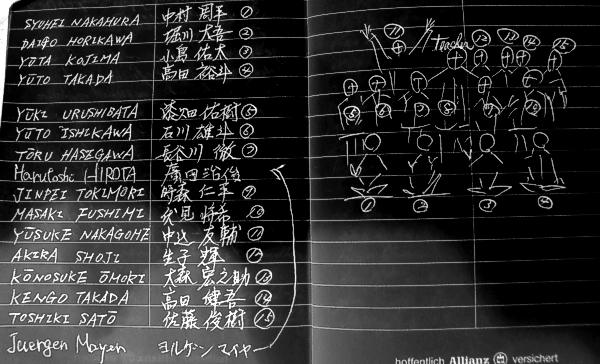 SYUHEI NAKAMURA 中村 周平 ①
DAIGO HORIKAWA 堀川 大吾 ②
YŪTA KOJIMA 小島 佑太 ③
YŪTO TAKADA 高田 裕斗 ④
YŪKI URUSHIBATA 漆畑 佑樹 ⑤
YŪTO ISHIKAWA 石川 雄斗 ⑥
TŌRU HASEGAWA 長谷川 徹 ⑦
Harutoshi HIROTA 廣田 治俊
JINPEI TOKIMORI 時森 仁平 ⑨
MASAKI FUSHIMI 伏見 将希 ⑩
YŪSUKE NAKAGOME 中込 友輔 ⑪
AKIRA SHOJI 生子 輝 ⑫
KŌNOSUKE ŌMORI 大森 宏之助 ⑬
KENGO TAKADA 高田 健吾 ⑭
TOSHIKI SATŌ 佐藤 俊樹 ⑮
Juergen Mayer ヨルゲン マイヤー
⑪ teacher ⑫ ⑬ ⑭ ⑮
⑤ ⑥ ⑦ ⑨ ⑩
① ② ③ ④
hoffentlich Allianz versichert